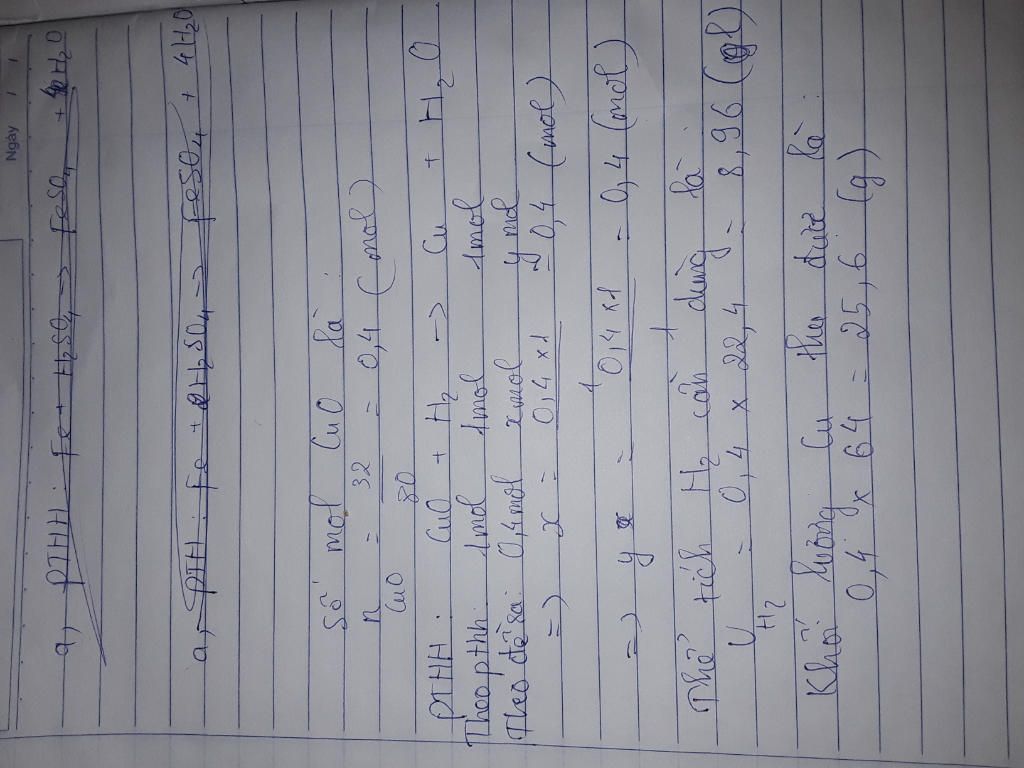 Ngày / /
a, PTHH: Fe + H2SO4 => FeSO4 + H2O
a, PTH: Fe + 2H2SO4 => FeSO4 + 4H2O
Số mol CuO là:
n CuO = 32/80 = 0,4 (mol)
PTHH: CuO + H2 -> Cu + H2O
Theo pthh: 1mol 1mol 1mol
Theo đề bài: 0,4mol xmol ymol
=> x = 0,4 x 1 / 1 = 0,4 (mol)
=> y = 0,4 x 1 / 1 = 0,4 (mol)
Thể tích H2 cần dùng là:
V H2 = 0,4 x 22,4 = 8,96 (l)
Khối lường Cu thu được là:
0,4 x 64 = 25,6 (g)